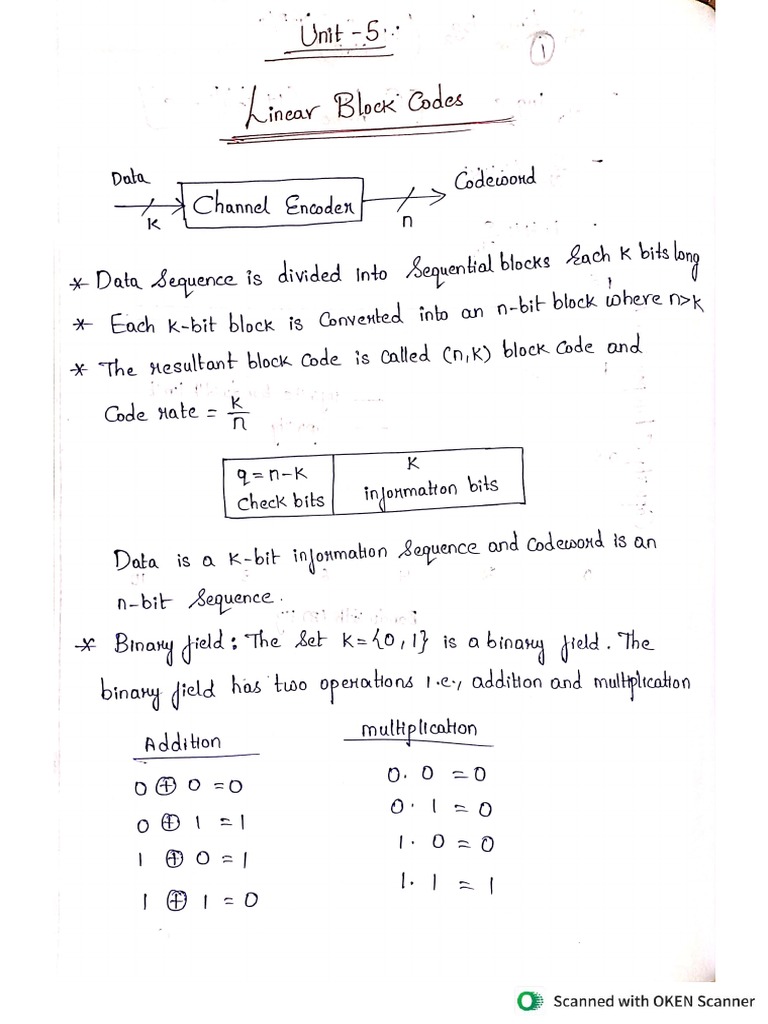 Unit -5
1
Linear Block Codes
Data
Channel Encoder
Codeword
K
n
* Data Sequence is divided into Sequential blocks Each K bits long
* Each K-bit block is Converted into an n-bit block where n>K
* The resultant block Code is called (n,K) block Code and
Code rate = K/n
q = n-K
Check bits
K
information bits
Data is a K-bit information Sequence and Codeword is an
n-bit Sequence.
* Binary field : The Set K = {0, 1} is a binary field. The
binary field has two operations i.e., addition and multiplication
Addition
0 ⊕ 0 = 0
0 ⊕ 1 = 1
1 ⊕ 0 = 1
1 ⊕ 1 = 0
multiplication
0. 0 = 0
0. 1 = 0
1. 0 = 0
1. 1 = 1
Scanned with OKEN Scanner